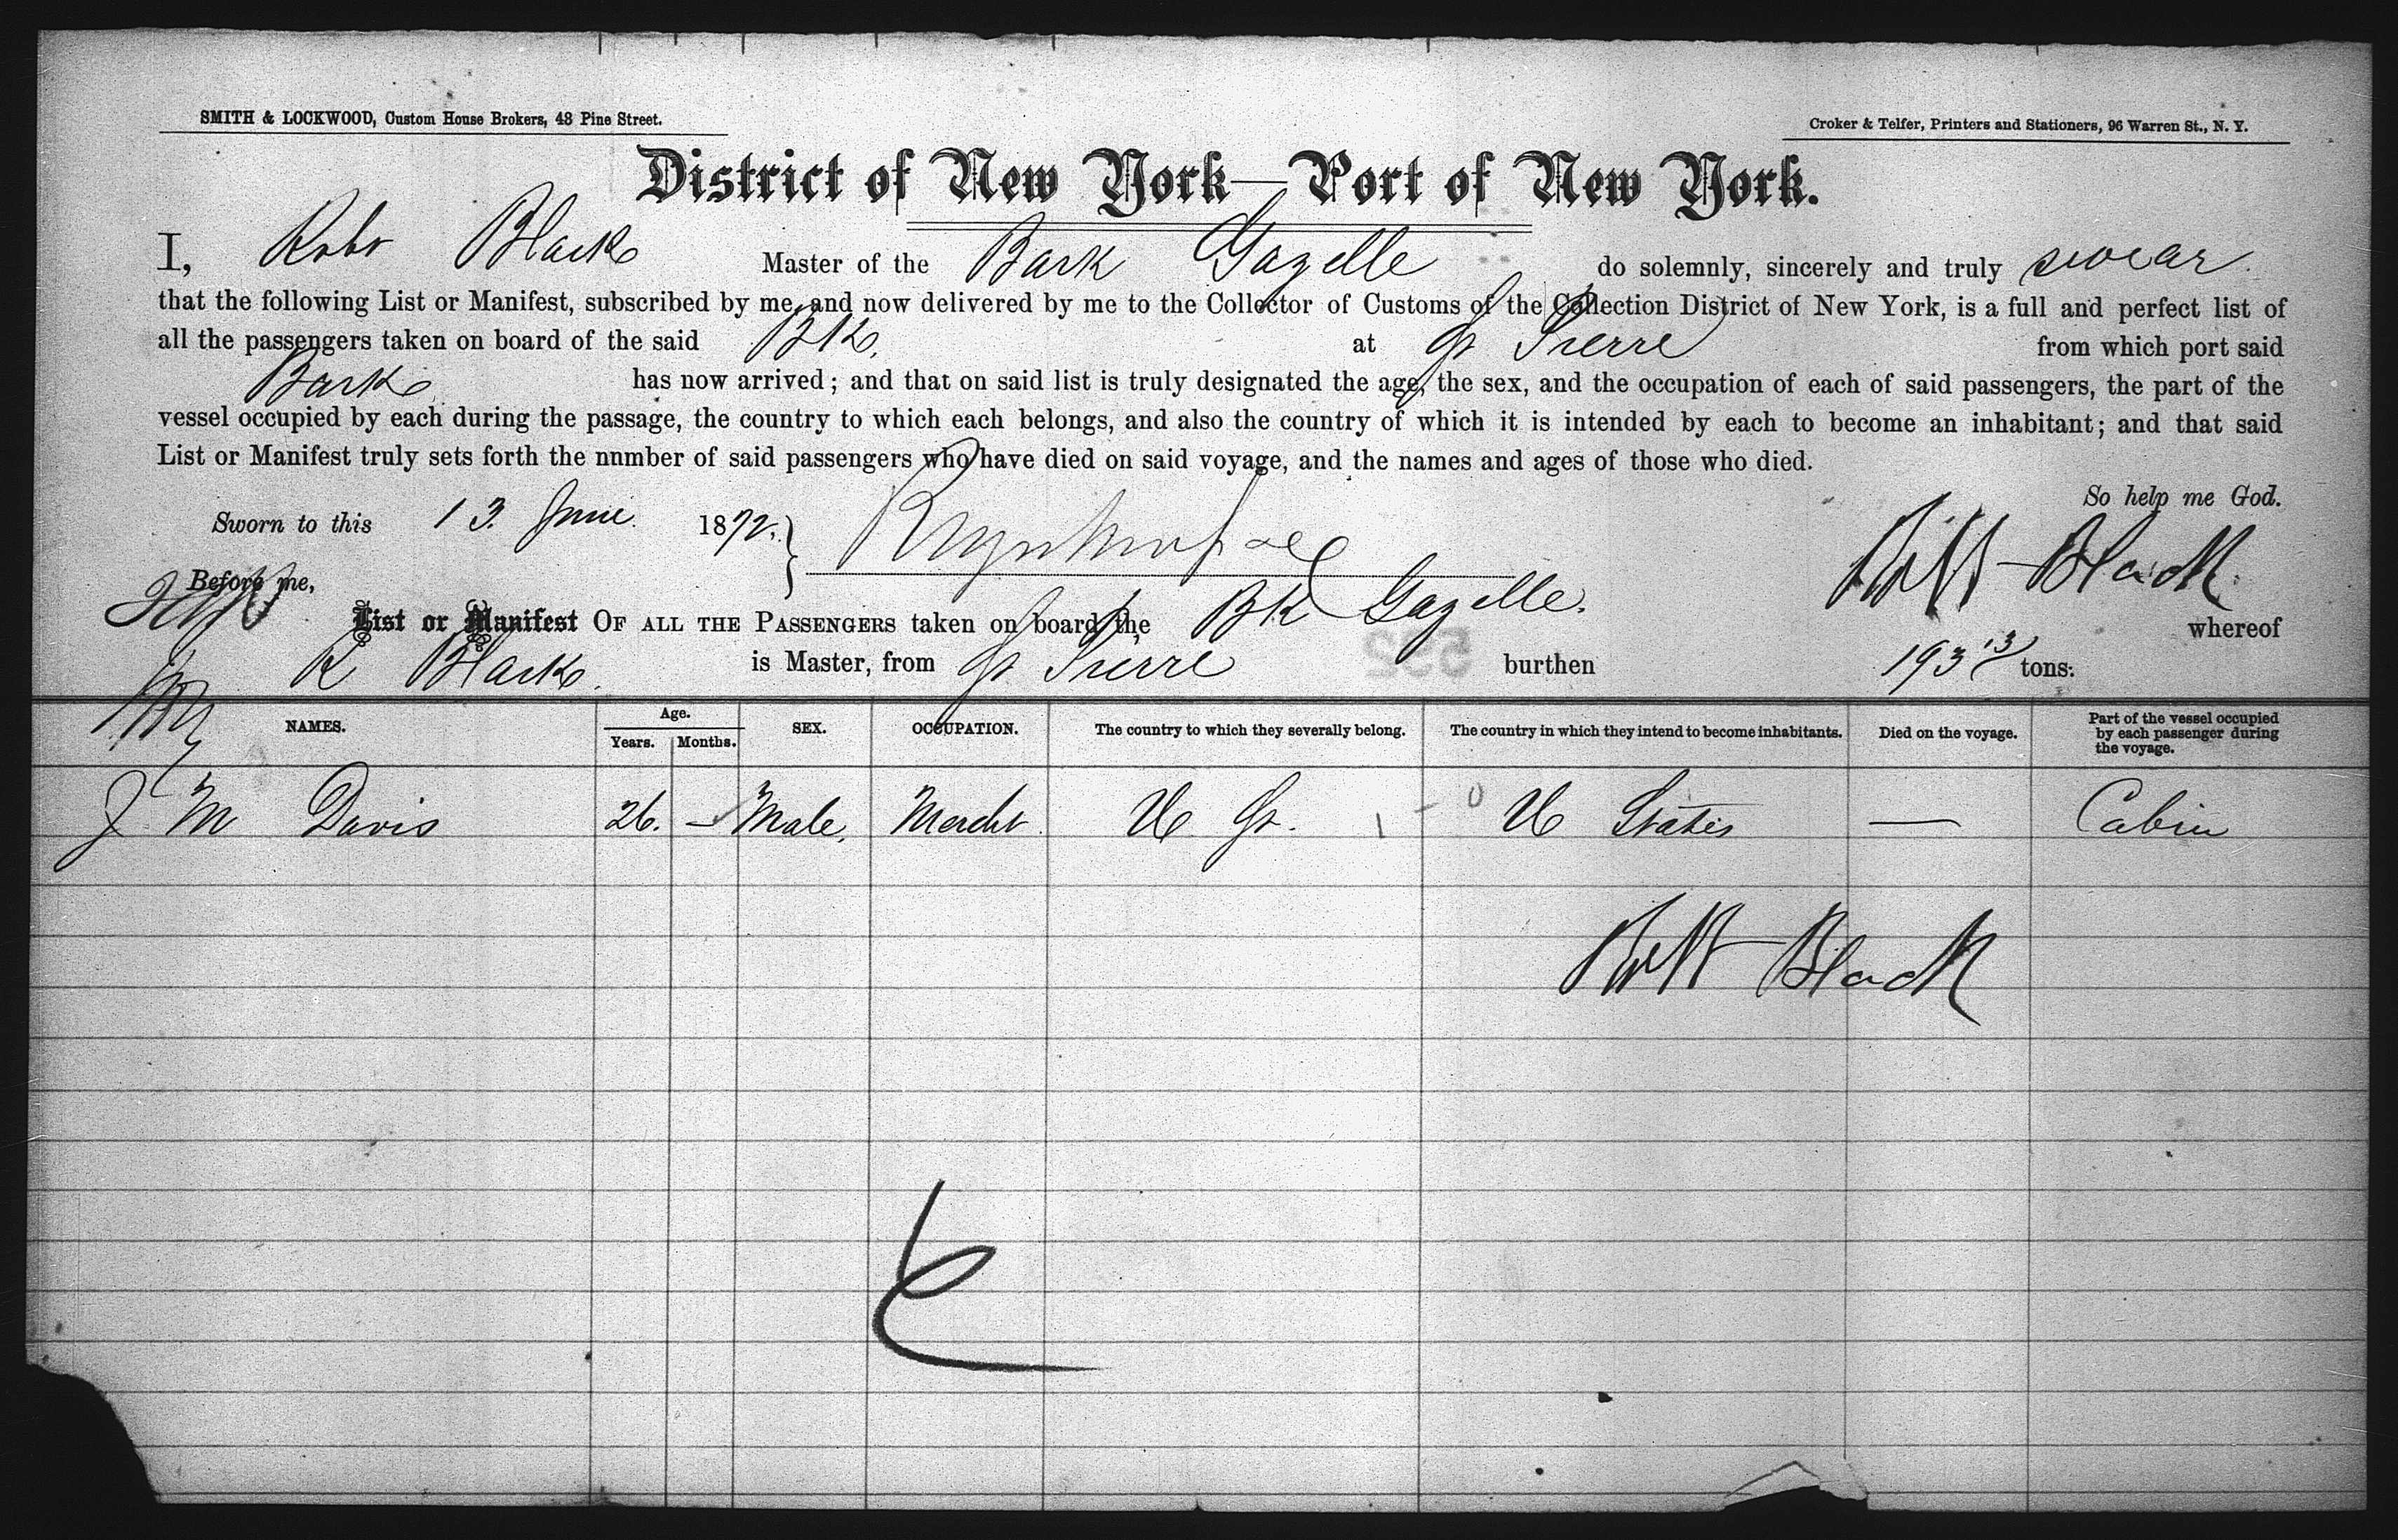 SMITH & LOCKWOOD, Custom House Brokers, 48 Pine Street.
Croker & Telfer, Printers and Stationers, 96 Warren St., N. Y.
District of New York—Port of New York.
I, Robt Black Master of the Bark Gazelle do solemnly, sincerely and truly swear
that the following List or Manifest, subscribed by me, and now delivered by me to the Collector of Customs of the Collection District of New York, is a full and perfect list of
all the passengers taken on board of the said Bk. at St Pierre from which port said
Bark has now arrived; and that on said list is truly designated the age, the sex, and the occupation of each of said passengers, the part of the
vessel occupied by each during the passage, the country to which each belongs, and also the country of which it is intended by each to become an inhabitant; and that said
List or Manifest truly sets forth the nnmber of said passengers who have died on said voyage, and the names and ages of those who died.
So help me God.
Sworn to this 13 June 1872.
Robt Black
Before me,
List or Manifest OF ALL THE PASSENGERS taken on board the Bk Gazelle. whereof
R Black is Master, from St Pierre burthen 193 13/ tons.
NAMES. Age. Years. Months. SEX. OCCUPATION. The country to which they severally belong. The country in which they intend to become inhabitants. Died on the voyage. Part of the vessel occupied by each passenger during the voyage.
J M Davis 26. — Male. Mercht U St. U States — Cabin
Robt Black